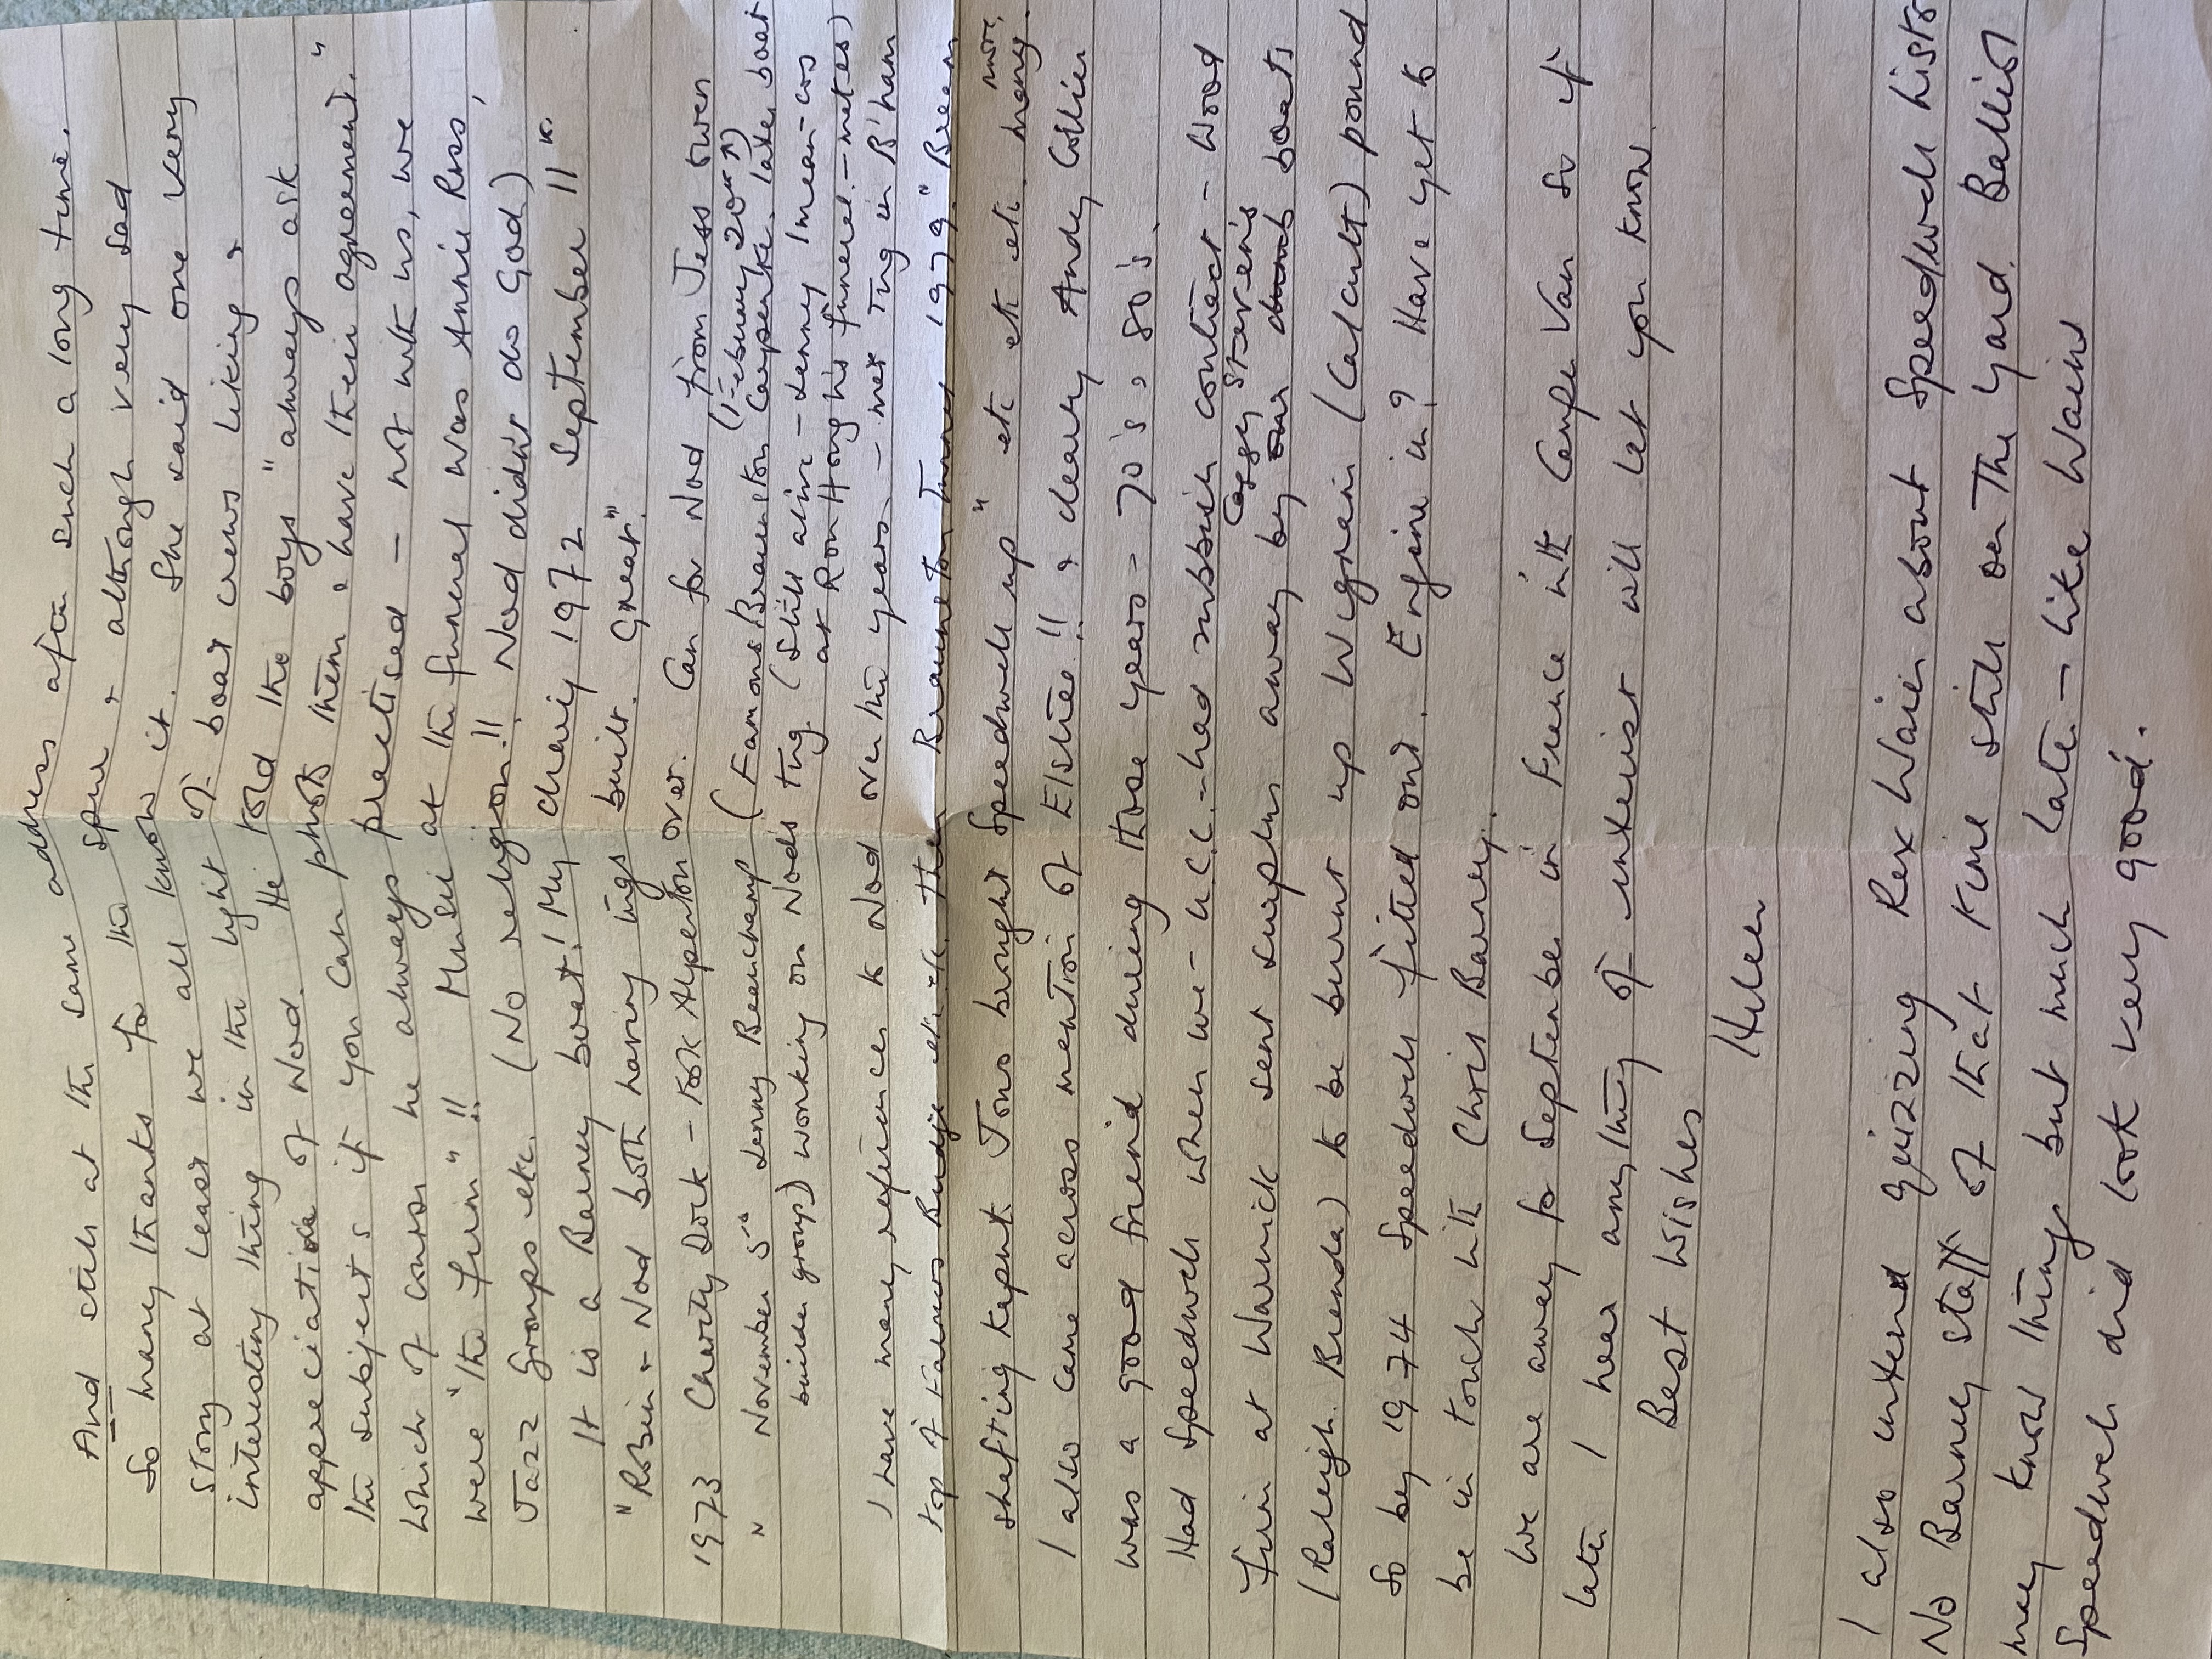 And still at the same address after such a long time.
So many thanks for the spine, & although very sad
story at least we all know it. She said one very
interesting thing in the light of boat crews liking &
appreciation of Nod. He told the boys "always ask
the subjects if you can photo them & have their agreement."
Which of course he always practised – not with us, we
were "the firm"!! Music at the funeral was Annie Ross,
Jazz Groups etc. (No religion!! Nod didn't do God)
It is a Barney boat! My diary 1972 September 11th.
"Robin & Nod both having tugs built. Great".
1973 Charity Dock – took Alperton over. Can for Nod from Jess Owen
(February 20th)
" November 5th Lenny Beauchamp (Famous Braunston Carpenter. Later boat
builder group) working on Nod's tug (still alive – Lenny I mean – cos
at Ron Hong his funeral. – mates)
I have many references to Nod over the years – met Tug in B'ham
top of Farmers Bridge etc. etc. then Braunston Turns 1979." Been
shafting Kepant Jono brought Speedwell up" etc etc etc etc. many more,
I also came across mention of Elstree!! & clearly Andy Collier
was a good friend during those years – 70's & 80's.
Had Speedwell when we – U.C.C. – had rubbish contract – Wood
Firm at Warwick sent surplus away by Caggy Stevens boats
(Raleigh. Brenda) to be burnt up Wigram (Calcutt) pound
So by 1974 Speedwell fitted out. Engine in? Have yet to
be in touch with Chris Barney.
We are away for September in France with Camper Van so if
later I hear anything of interest will let you know.
Best Wishes
Helen
I also intend quizzing Rex Wain about Speedwell history
No Barney staff of that time still on The Yard. Ballinger
may know things but much later – like Wains
Speedwell did look very good.